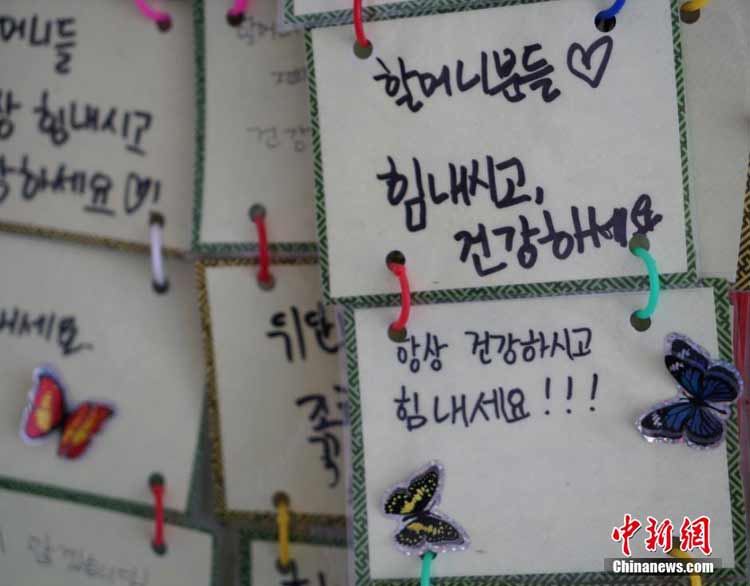 머니들
힘내시고
하세요
건강
할머니분들 ♡
힘내시고,
건강하세요
내세요
위안
항상 건강하시고
힘내세요!!!
中新网
Chinanews.com